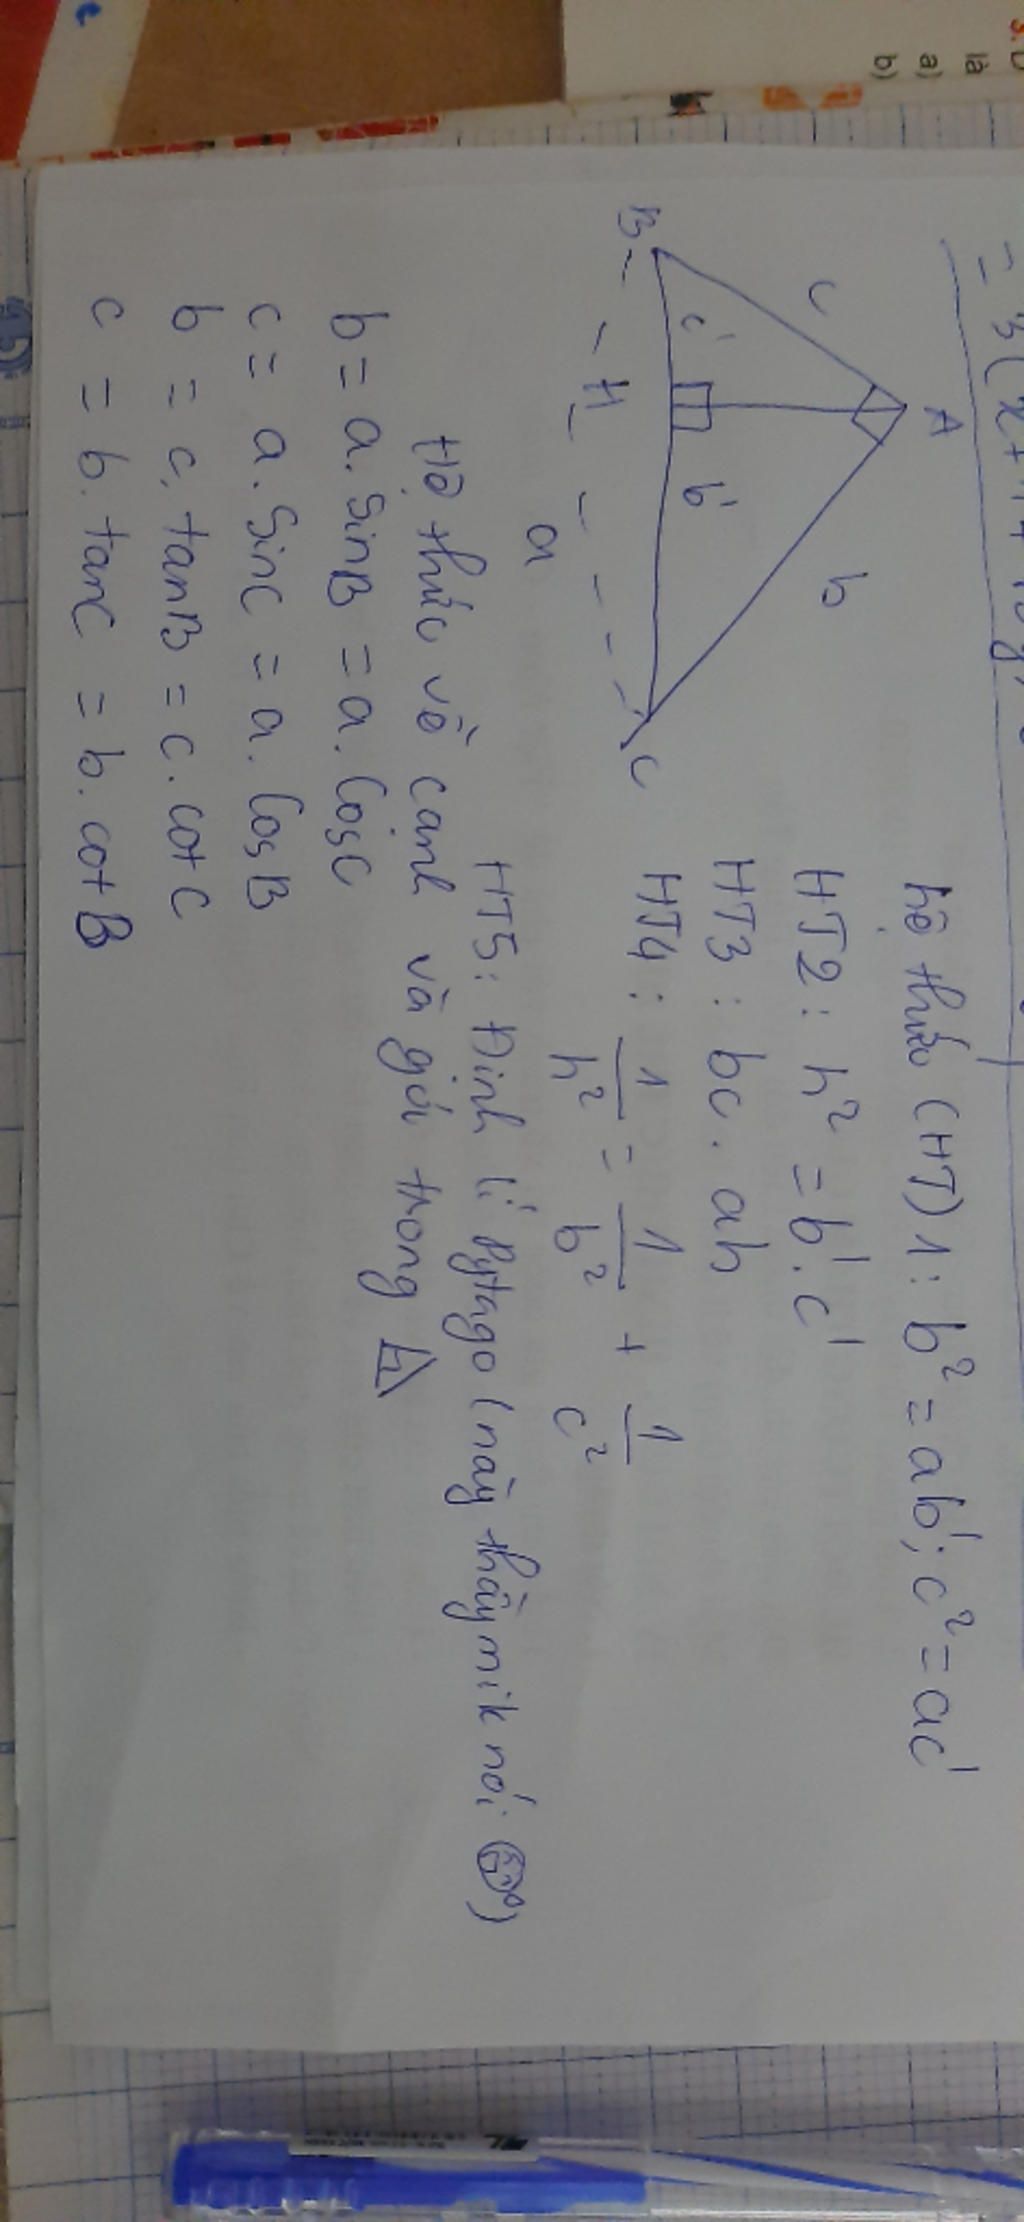 A
c
b
c'
b'
B
H
C
a
hệ thức (HT) 1: b² = ab'; c² = ac'
HT2: h² = b'.c'
HT3: bc. ah
HT4: 1/h² = 1/b² + 1/c²
HT5: Định lí Pytago (này thầy mik nói)
Hệ thức về cạnh và góc trong
b = a. SinB = a. CosC
c = a. SinC = a. CosB
b = c. tanB = c. cotC
c = b. tanC = b. cotB
là
a)
b)